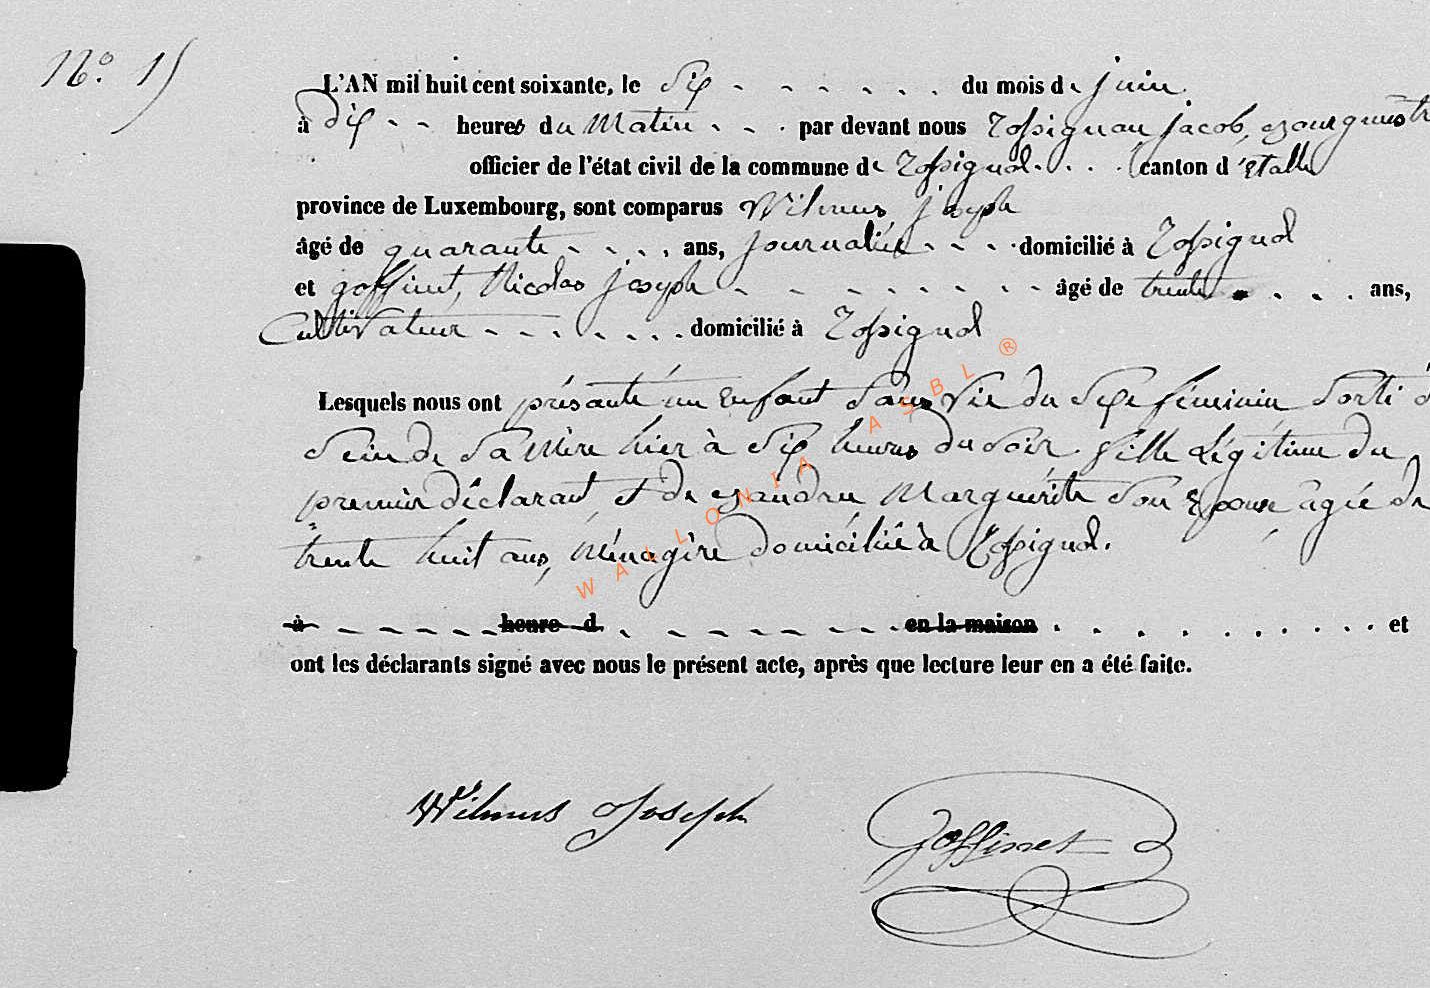 N° 15
L'AN mil huit cent soixante, le Six du mois de juin
à dix heures du Matin par devant nous Rossignon jacob, Bourgmestr
officier de l'état civil de la commune de Rossignol canton d'étalle
province de Luxembourg, sont comparus Wilmus joseph
âgé de quarante ans, journalier domicilié à Rossignol
et goffinet, Nicolas joseph âgé de trente ans,
Cultivateur domicilié à Rossignol
Lesquels nous ont présanté un Enfant Sans Vie du Sexe féminin Sorti d
Sein de Sa Mère hier à Six heures du Soir fille Légitime du
premier déclarant, et de Marguérite Son Epouse âgée de
trente huit ans, Ménagère domiciliée à Rossignol.
à heure d en la maison et
ont les déclarants signé avec nous le présent acte, après que lecture leur en a été faite.
WALLONIA ASBL ®
Wilmus Joseph
Goffinet